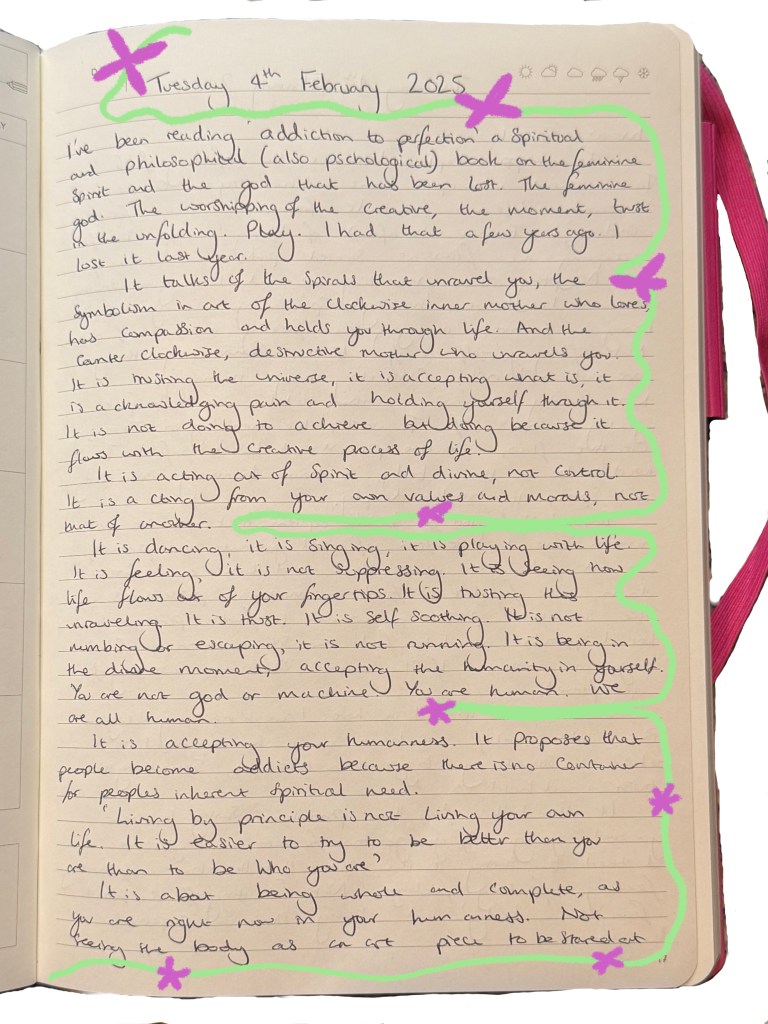 Tuesday 4th February 2025
I've been reading 'addiction to perfection' a Spiritual
and philosophical (also pschological) book on the feminine
Spirit and the god that has been lost. The feminine
god. The worshipping of the creative, the moment, trust
in the unfolding. Play. I had that a few years ago. I
lost it last year.
It talks of the Spirals that unravel you, the
Symbolism in art of the Clockwise inner mother who loves,
has compassion and holds you through life. And the
Counter Clockwise, destructive mother who unravels you.
It is trusting the universe, it is accepting what is, it
is acknowledging pain and holding yourself through it.
It is not doing to achieve but doing because it
flows with the creative process of life.
It is acting out of Spirit and divine, not Control
It is acting from your own values and morals, not
that of another.
It is dancing, it is singing, it is playing with life.
It is feeling, it is not suppressing. It is seeing how
life flows out of your fingertips. It is trusting the
unraveling. It is trust. It is self soothing. It is not
numbing or escaping, it is not running. It is being in
the divine moment, accepting the humanity in yourself.
You are not god or machine. You are human. We
are all human.
It is accepting your humanness. It proposes that
people become addicts because there is no Container
for peoples inherent Spiritual need.
'Living by principle is not Living your own
life. It is easier to try to be better than you
are than to be Who you are'
It is about being whole and complete, as
you are right now in your humanness. Not
seeing the body as an art piece to be stared at